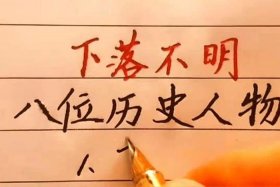 下落不明
八位历史人物
1、